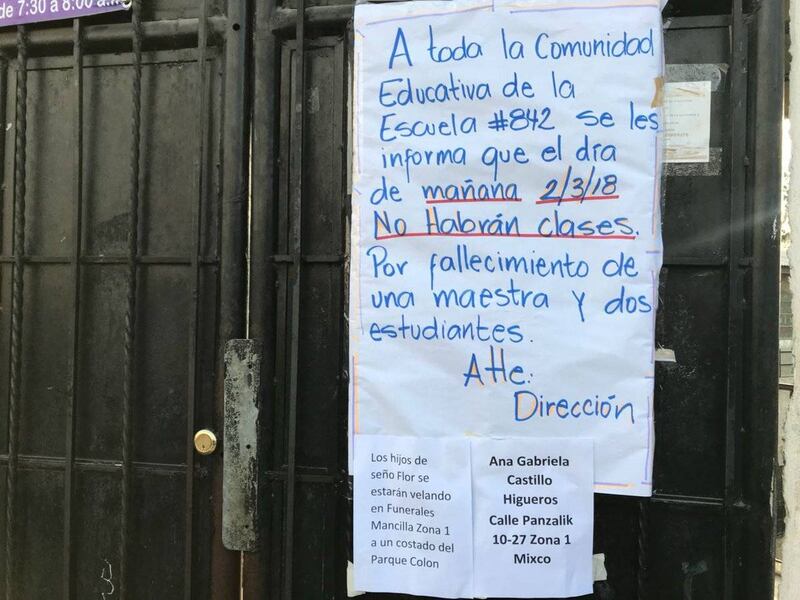 de 7:30 a 8:00 a.m.
A toda la Comunidad
Educativa de la
Escuela #842 se les
informa que el día
de mañana 2/3/18
No Habrán clases.
Por fallecimiento de
una maestra y dos
estudiantes.
Atte:
Dirección
Los hijos de
seño Flor se
estarán velando
en Funerales
Mancilla Zona 1
a un costado del
Parque Colon
Ana Gabriela
Castillo
Higueros
Calle Panzalik
10-27 Zona 1
Mixco